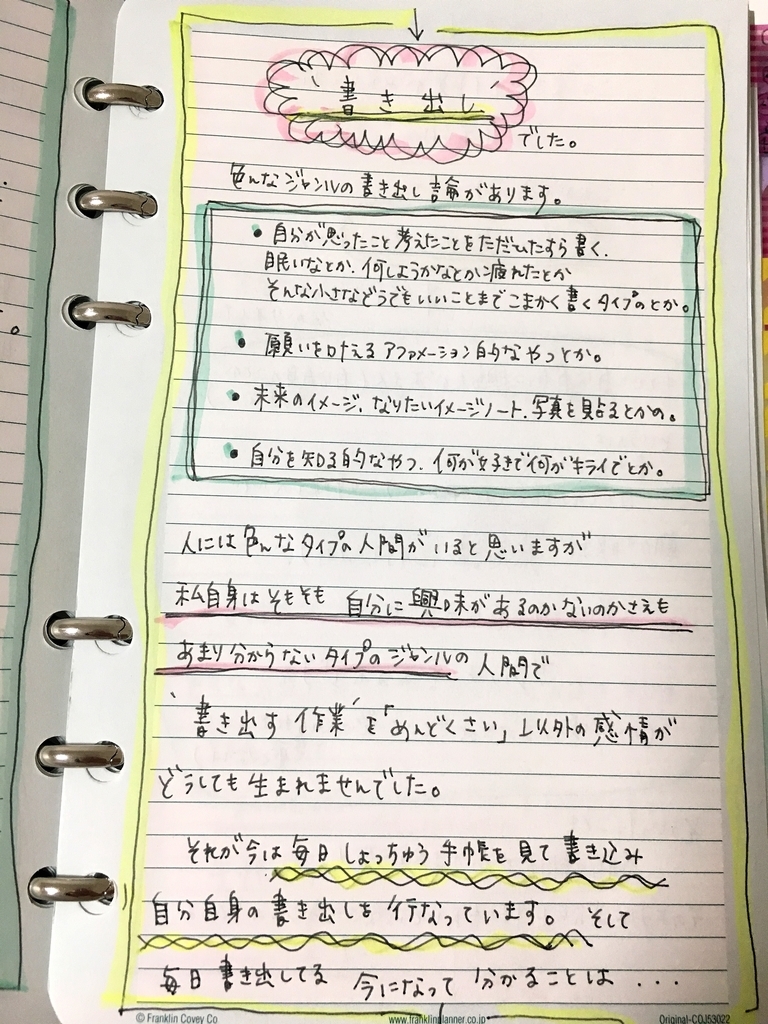 書き出し
でした。
色んなジャンルの書き出し論があります。
• 自分が思ったこと考えたことをただひたすら書く.
眠いなとか、何しようかなとか疲れたとか
そんな小さなどうでもいいことまでこまかく書くタイプのとか。
• 願いを叶えるアファメーション的なやつとか。
• 未来のイメージ、なりたいイメージノート、写真を貼るとかの。
• 自分を知る的なやつ、何が好きで何がキライでとか。
人には色んなタイプの人間がいると思いますが
私自身はそもそも 自分に興味があるのかないのかさえも
あまり分からないタイプのジャンルの人間で
"書き出す作業"を「めんどくさい」以外の感情が
どうしても生まれませんでした。
それが今は毎日しょっちゅう手帳を見て書き込み
自分自身の書き出しを行なっています。 そして
毎日書き出してる 今になって 分かることは...
© Franklin Covey Co www.franklinplanner.co.jp Original-COJ53022